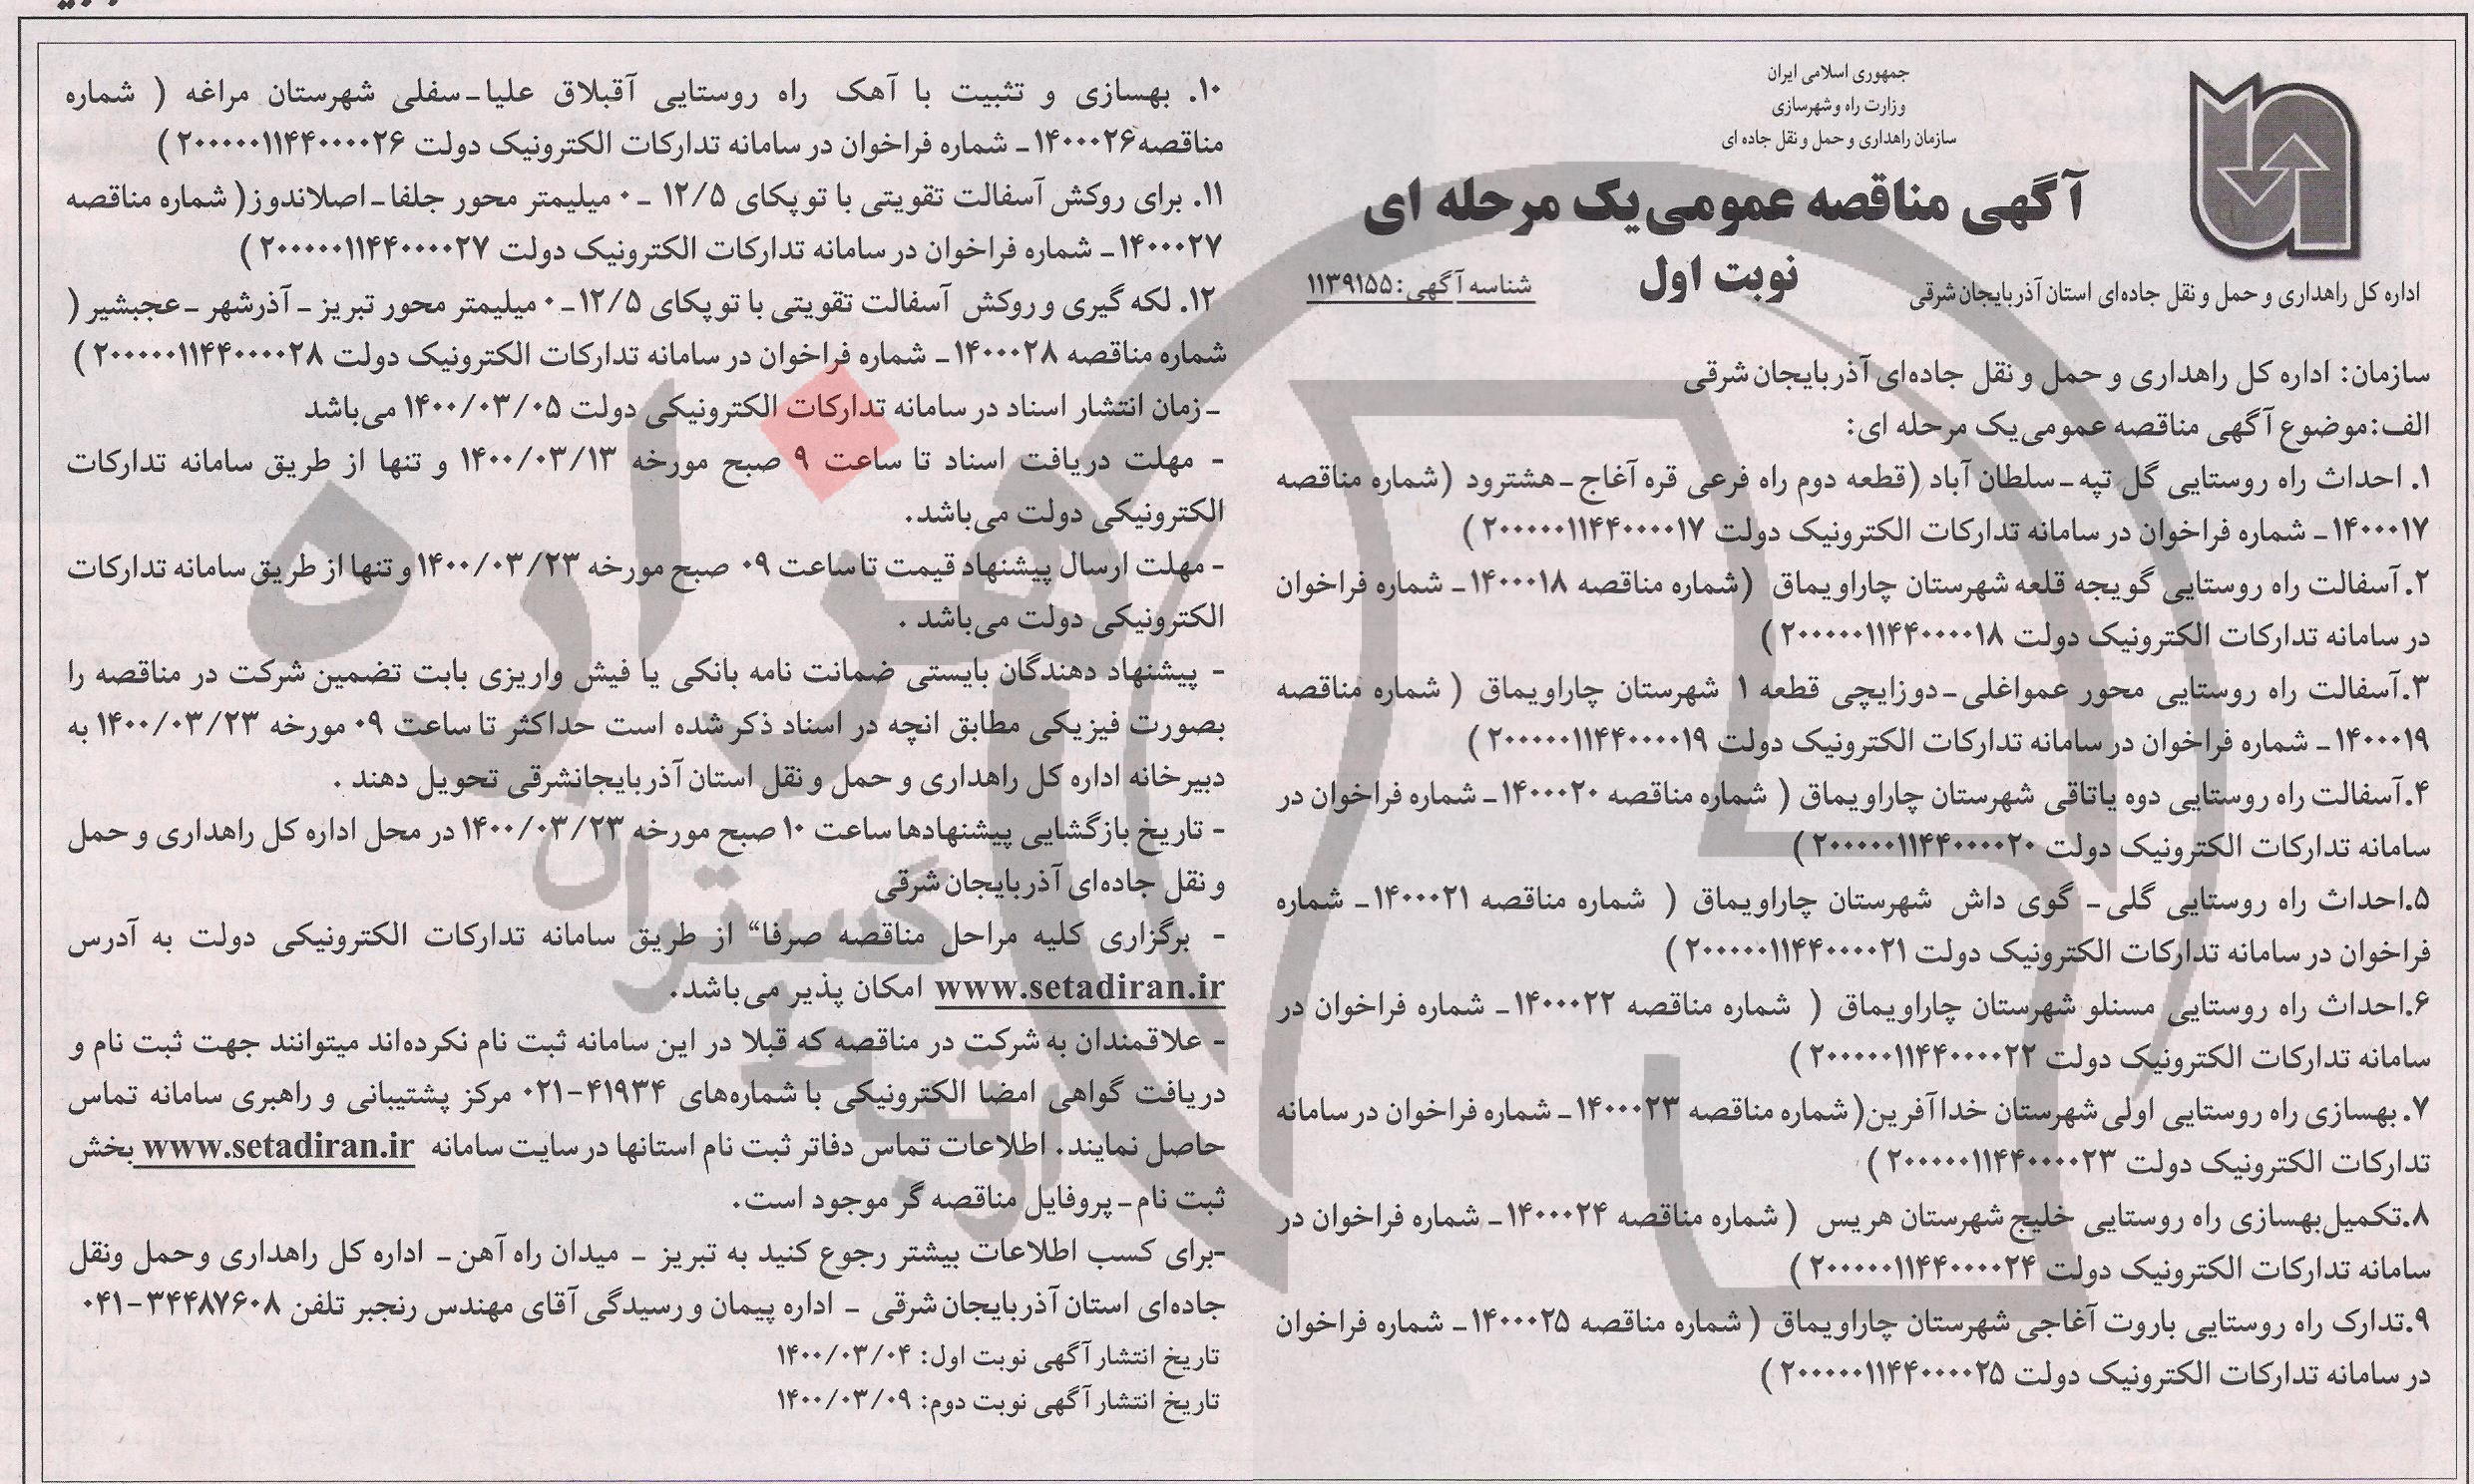 جمهوری اسلامی ایران
وزارت راه و شهرسازی
سازمان راهداری و حمل و نقل جاده ای
آگهی مناقصه عمومی یک مرحله ای
نوبت اول
شناسه آگهی: ۱۱۳۹۱۵۵
اداره کل راهداری و حمل و نقل جاده‌ای استان آذربایجان شرقی
سازمان: اداره کل راهداری و حمل و نقل جاده‌ای آذربایجان شرقی
الف: موضوع آگهی مناقصه عمومی یک مرحله ای:
۱. احداث راه روستایی گل تپه ـ سلطان آباد (قطعه دوم راه فرعی قره آغاج ـ هشترود (شماره مناقصه
۱۴۰۰۰۱۷ ـ شماره فراخوان در سامانه تدارکات الکترونیک دولت ۲۰۰۰۰۰۱۱۴۴۰۰۰۰۱۷)
۲. آسفالت راه روستایی گویجه قلعه شهرستان چاراویماق (شماره مناقصه ۱۴۰۰۰۱۸ ـ شماره فراخوان
در سامانه تدارکات الکترونیک دولت ۲۰۰۰۰۰۱۱۴۴۰۰۰۰۱۸)
۳. آسفالت راه روستایی محور عمواغلی ـ دوزایچی قطعه ۱ شهرستان چاراویماق (شماره مناقصه
۱۴۰۰۰۱۹ ـ شماره فراخوان در سامانه تدارکات الکترونیک دولت ۲۰۰۰۰۰۱۱۴۴۰۰۰۰۱۹)
۴. آسفالت راه روستایی دوه یاتاقی شهرستان چاراویماق (شماره مناقصه ۱۴۰۰۰۲۰ ـ شماره فراخوان در
سامانه تدارکات الکترونیک دولت ۲۰۰۰۰۰۱۱۴۴۰۰۰۰۲۰)
۵. احداث راه روستایی گلی ـ گوی داش شهرستان چاراویماق (شماره مناقصه ۱۴۰۰۰۲۱ ـ شماره
فراخوان در سامانه تدارکات الکترونیک دولت ۲۰۰۰۰۰۱۱۴۴۰۰۰۰۲۱)
۶. احداث راه روستایی مسنلو شهرستان چاراویماق (شماره مناقصه ۱۴۰۰۰۲۲ ـ شماره فراخوان در
سامانه تدارکات الکترونیک دولت ۲۰۰۰۰۰۱۱۴۴۰۰۰۰۲۲)
۷. بهسازی راه روستایی اولی شهرستان خداآفرین (شماره مناقصه ۱۴۰۰۰۲۳ ـ شماره فراخوان در سامانه
تدارکات الکترونیک دولت ۲۰۰۰۰۰۱۱۴۴۰۰۰۰۲۳)
۸. تکمیل بهسازی راه روستایی خلیج شهرستان هریس (شماره مناقصه ۱۴۰۰۰۲۴ ـ شماره فراخوان در
سامانه تدارکات الکترونیک دولت ۲۰۰۰۰۰۱۱۴۴۰۰۰۰۲۴)
۹. تدارک راه روستایی باروت آغاجی شهرستان چاراویماق (شماره مناقصه ۱۴۰۰۰۲۵ ـ شماره فراخوان
در سامانه تدارکات الکترونیک دولت ۲۰۰۰۰۰۱۱۴۴۰۰۰۰۲۵)
۱۰. بهسازی و تثبیت با آهک راه روستایی آقبلاق علیا ـ سفلی شهرستان مراغه (شماره
مناقصه ۱۴۰۰۰۲۶ ـ شماره فراخوان در سامانه تدارکات الکترونیک دولت ۲۰۰۰۰۰۱۱۴۴۰۰۰۰۲۶)
۱۱. برای روکش آسفالت تقویتی با توپکای ۱۲/۵ ـ ۰ میلیمتر محور جلفا ـ اصلاندوز (شماره مناقصه
۱۴۰۰۰۲۷ ـ شماره فراخوان در سامانه تدارکات الکترونیک دولت ۲۰۰۰۰۰۱۱۴۴۰۰۰۰۲۷)
۱۲. لکه گیری و روکش آسفالت تقویتی با توپکای ۱۲/۵ ـ ۰ میلیمتر محور تبریز ـ آذرشهر ـ عجبشیر (
شماره مناقصه ۱۴۰۰۰۲۸ ـ شماره فراخوان در سامانه تدارکات الکترونیک دولت ۲۰۰۰۰۰۱۱۴۴۰۰۰۰۲۸)
ـ زمان انتشار اسناد در سامانه تدارکات الکترونیکی دولت ۱۴۰۰/۰۳/۰۵ می‌باشد
- مهلت دریافت اسناد تا ساعت ۹ صبح مورخه ۱۴۰۰/۰۳/۱۳ و تنها از طریق سامانه تدارکات
الکترونیکی دولت می‌باشد.
- مهلت ارسال پیشنهاد قیمت تا ساعت ۰۹ صبح مورخه ۱۴۰۰/۰۳/۲۳ و تنها از طریق سامانه تدارکات
الکترونیکی دولت می‌باشد .
- پیشنهاد دهندگان بایستی ضمانت نامه بانکی یا فیش واریزی بابت تضمین شرکت در مناقصه را
بصورت فیزیکی مطابق انچه در اسناد ذکر شده است حداکثر تا ساعت ۰۹ مورخه ۱۴۰۰/۰۳/۲۳ به
دبیرخانه اداره کل راهداری و حمل و نقل استان آذربایجانشرقی تحویل دهند .
- تاریخ بازگشایی پیشنهادها ساعت ۱۰ صبح مورخه ۱۴۰۰/۰۳/۲۳ در محل اداره کل راهداری و حمل
و نقل جاده‌ای آذربایجان شرقی
- برگزاری کلیه مراحل مناقصه صرفا“ از طریق سامانه تدارکات الکترونیکی دولت به آدرس
www.setadiran.ir امکان پذیر می‌باشد.
- علاقمندان به شرکت در مناقصه که قبلا در این سامانه ثبت نام نکرده‌اند میتوانند جهت ثبت نام و
دریافت گواهی امضا الکترونیکی با شماره‌های ۴۱۹۳۴-۰۲۱ مرکز پشتیبانی و راهبری سامانه تماس
حاصل نمایند. اطلاعات تماس دفاتر ثبت نام استانها در سایت سامانه www.setadiran.ir بخش
ثبت نام ـ پروفایل مناقصه گر موجود است.
-برای کسب اطلاعات بیشتر رجوع کنید به تبریز ـ میدان راه آهن ـ اداره کل راهداری و حمل ونقل
جاده‌ای استان آذربایجان شرقی ـ اداره پیمان و رسیدگی آقای مهندس رنجبر تلفن ۳۴۴۸۷۶۰۸-۰۴۱
تاریخ انتشار آگهی نوبت اول: ۱۴۰۰/۰۳/۰۴
تاریخ انتشار آگهی نوبت دوم: ۱۴۰۰/۰۳/۰۹